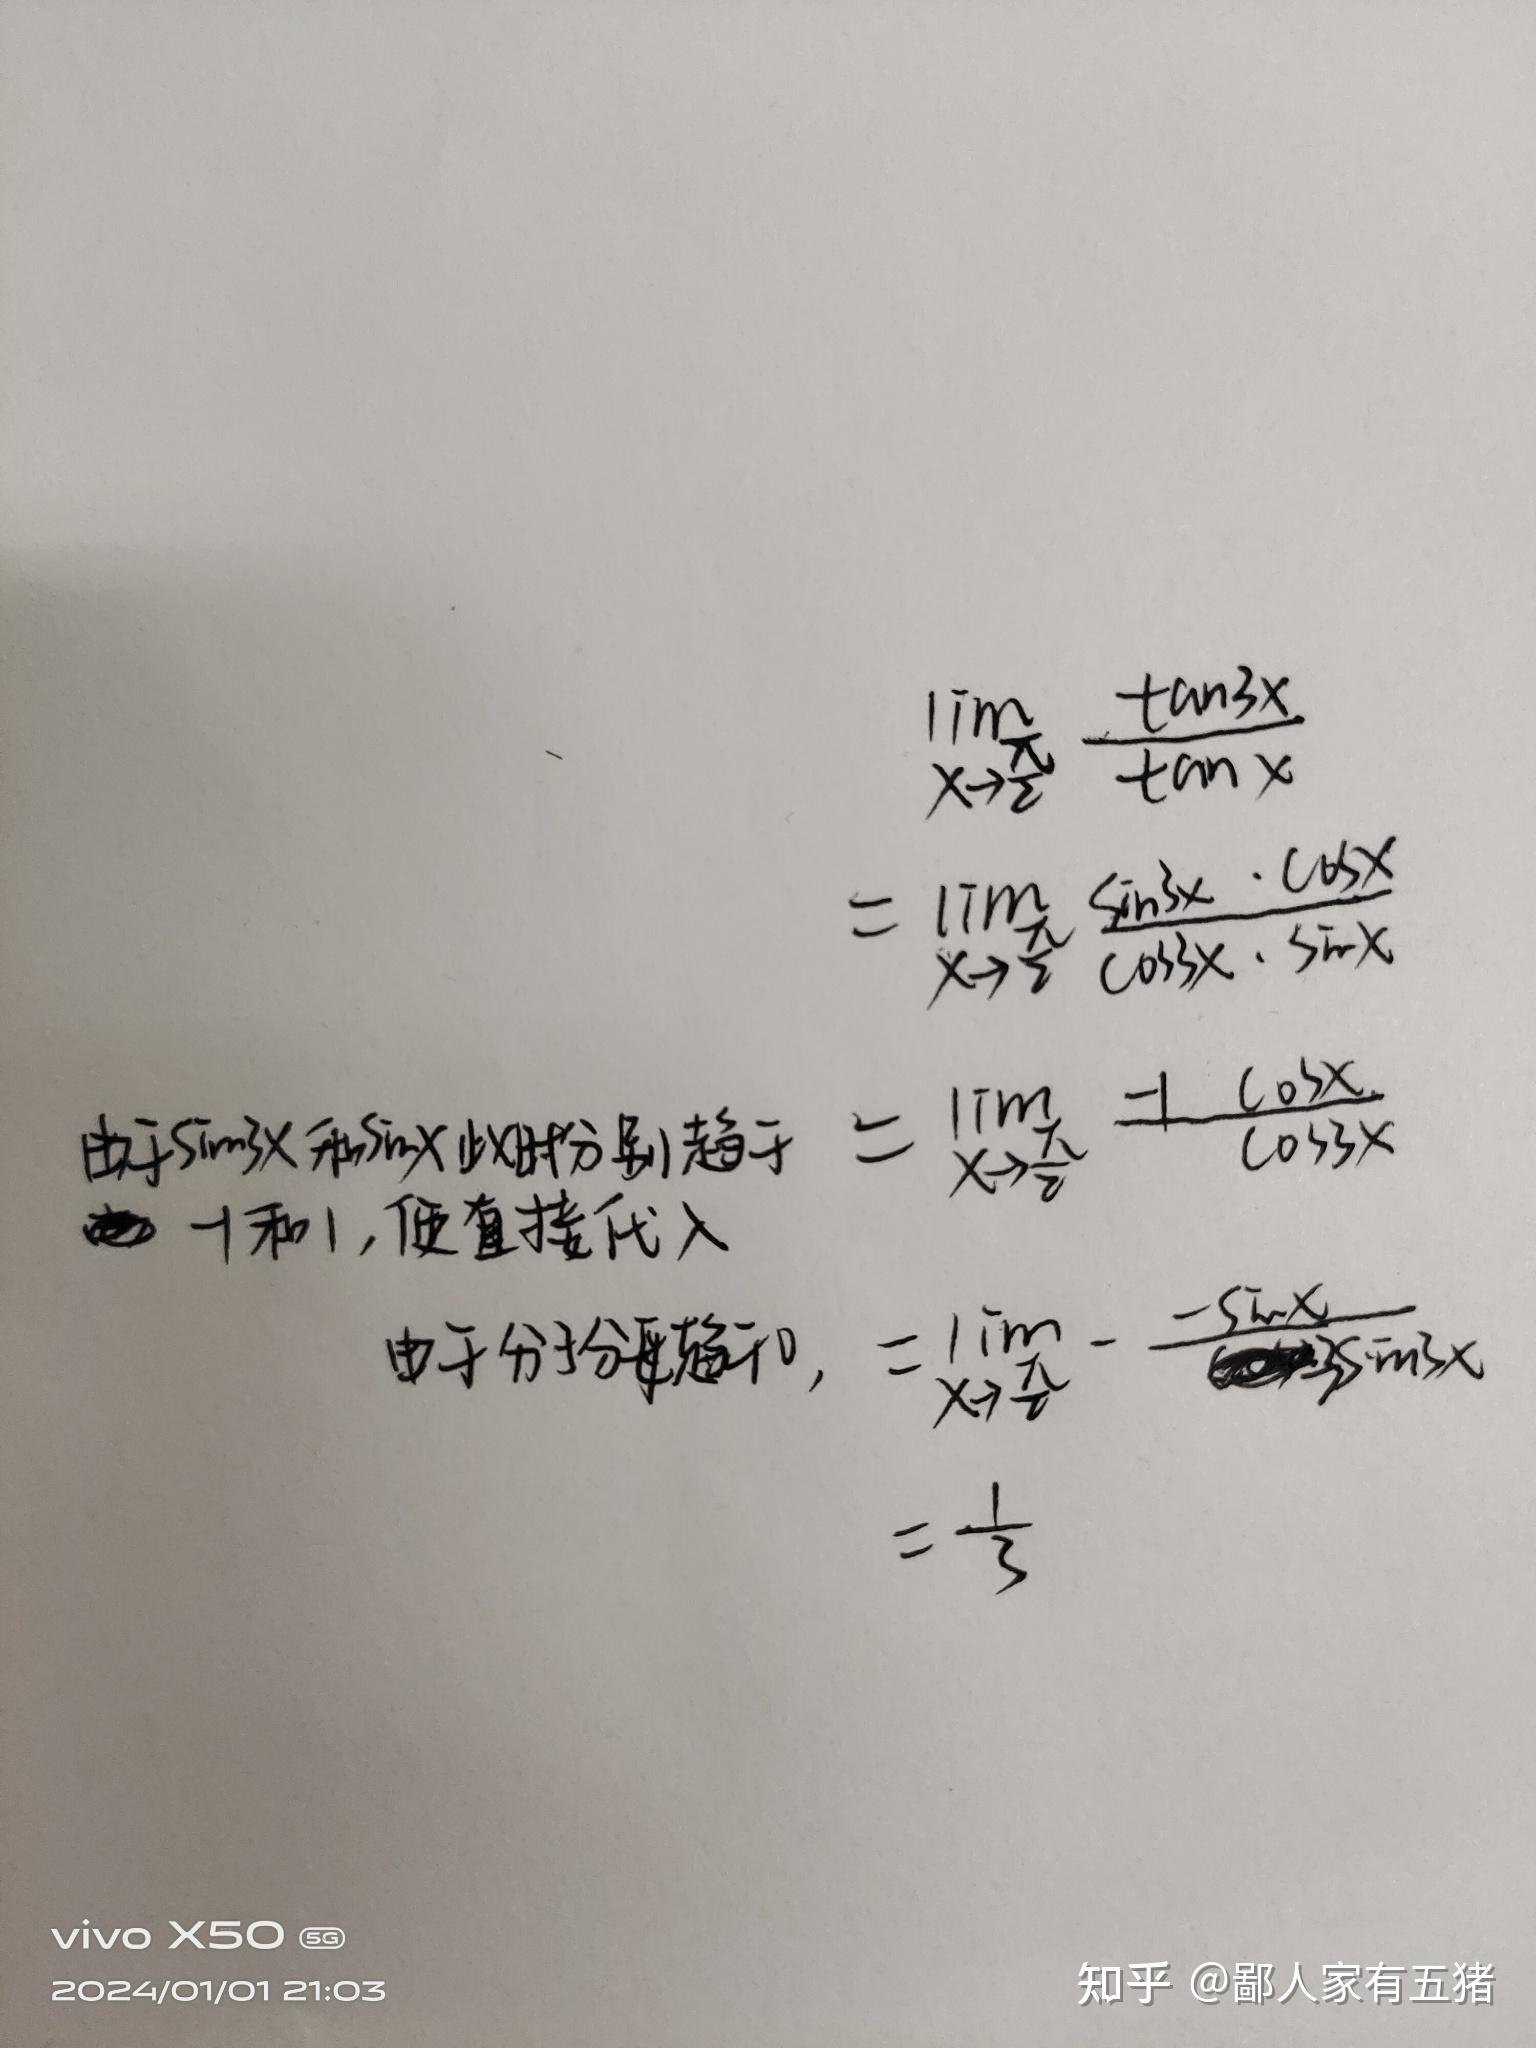 lim x→π/2 tan3x / tan x
= lim x→π/2 sin3x · cosx / cos3x · sinx
由于sin3x和sinx此时分别趋于 = lim x→π/2 -1 cosx / cos3x
-1和1,便直接代入
由于分子分母趋于0, = lim x→π/2 - -sinx / -3sin3x
= 1/3
vivo X50 5G
2024/01/01 21:03
知乎 @鄙人家有五猪